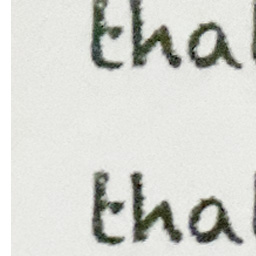 tha
tha